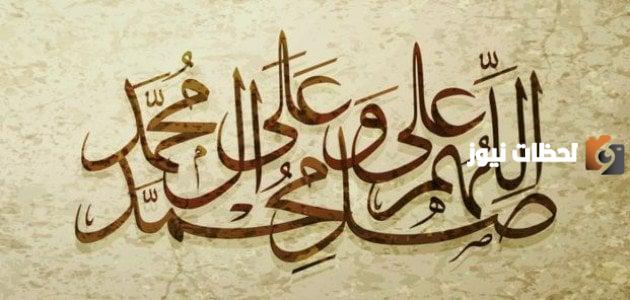 اللّٰهُمَّ صَلِّ عَلَى مُحَمَّدٍ وَعَلَى آلِ مُحَمَّدٍ
لحظات نيوز